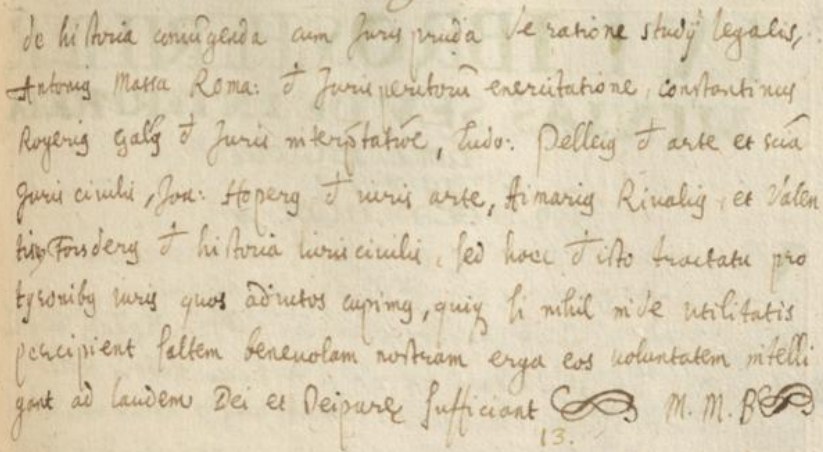 de historia coniũgenda cum Juris pruda de ratione studij legalis,
Antoniꝯ Massa Roma: đ Jurisperitorũ exercitatione, constantinus
Rogeriꝯ Galꝯ đ Juris interp̃tatiõe, Ludo: Pelleiꝯ đ arte et sciã
Juris civilis, Joa: Hoperꝯ đ iuris arte, Aimariꝯ Rivaliꝯ, et Valen
tinꝯ Forsderꝯ đ historia iuris ciuilis, sed hoec đ isto tractatu pro
tyronibꝯ iuris quos adiutos cupimꝯ, quiqꝫ si nihil inde utilitatis
percipient saltem beneuolam nostram erga eos voluntatem intelli
gant ad laudem Dei et Deiparę sufficiant M. M. B
13.